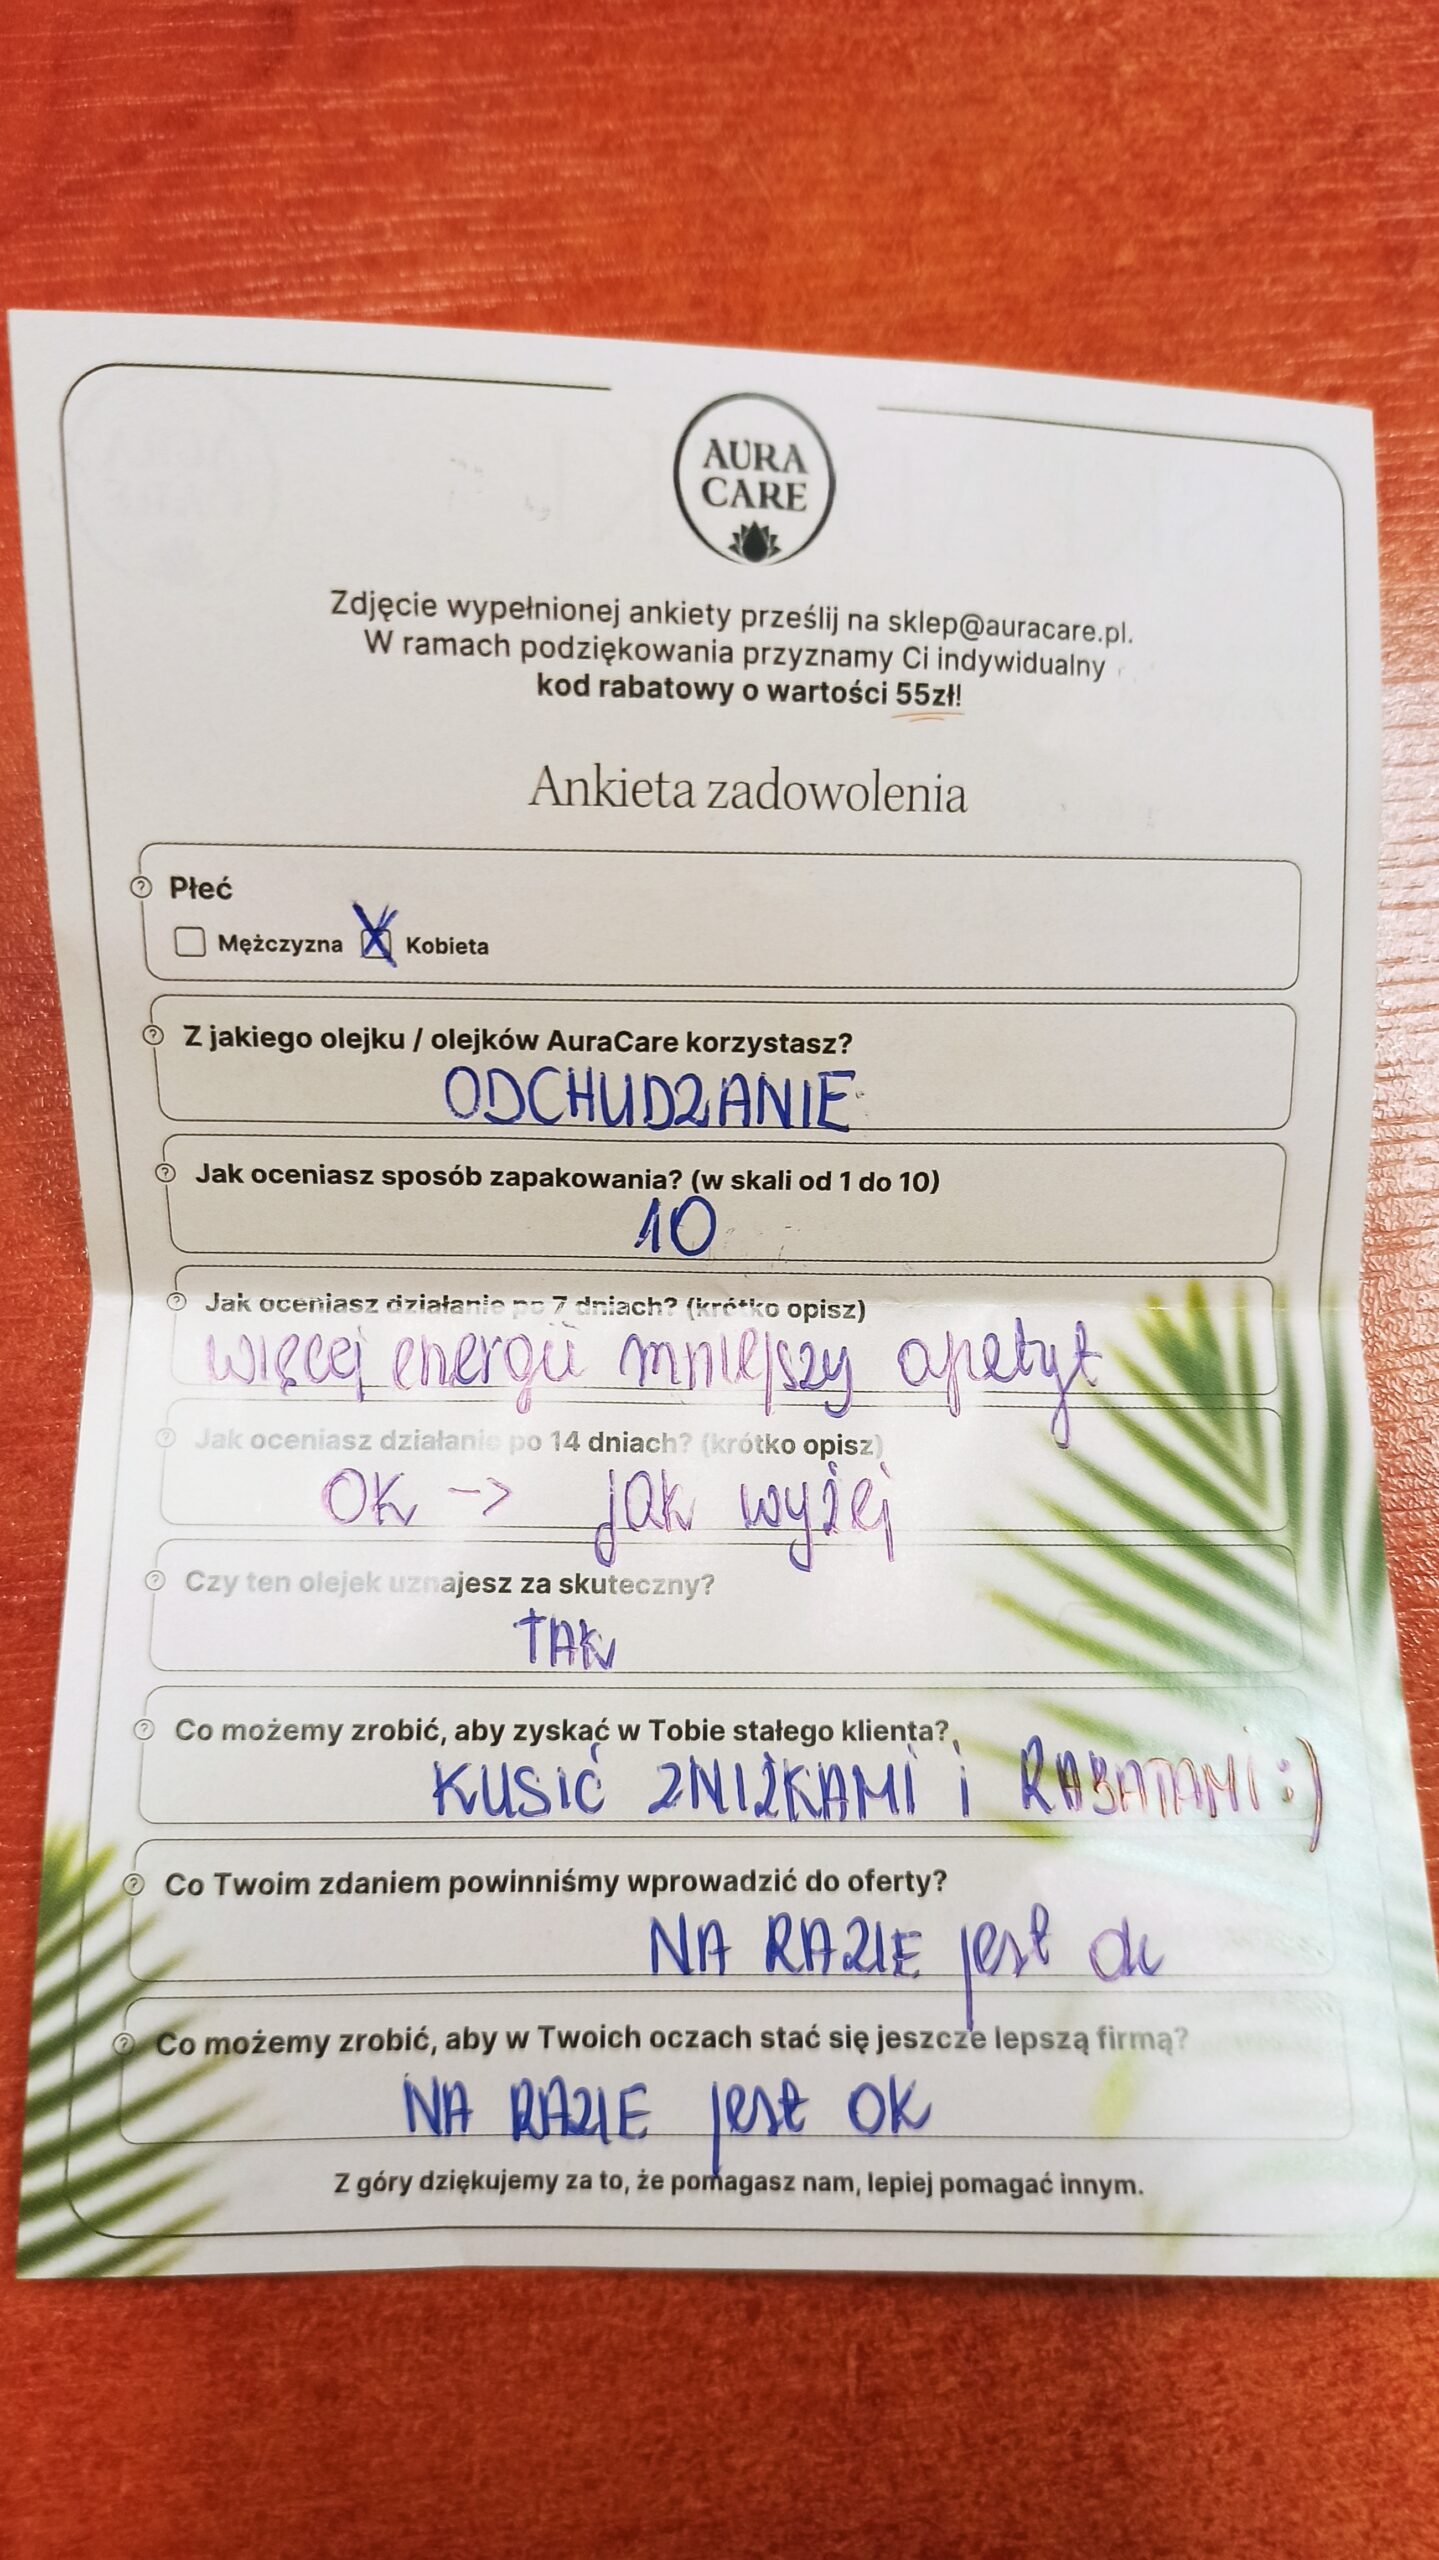 AURA
CARE
Zdjęcie wypełnionej ankiety prześlij na sklep@auracare.pl.
W ramach podziękowania przyznamy Ci indywidualny
kod rabatowy o wartości 55zł!
Ankieta zadowolenia
Płeć
Mężczyzna X Kobieta
Z jakiego olejku / olejków AuraCare korzystasz?
ODCHUDZANIE
Jak oceniasz sposób zapakowania? (w skali od 1 do 10)
10
Jak oceniasz działanie po 7 dniach? (krótko opisz)
więcej energii mniejszy apetyt
Jak oceniasz działanie po 14 dniach? (krótko opisz)
OK -> jak wyżej
Czy ten olejek uznajesz za skuteczny?
TAK
Co możemy zrobić, aby zyskać w Tobie stałego klienta?
KUSIĆ ZNIŻKAMI i RABATAMI :)
Co Twoim zdaniem powinniśmy wprowadzić do oferty?
NA RAZIE jest ok
Co możemy zrobić, aby w Twoich oczach stać się jeszcze lepszą firmą?
NA RAZIE jest OK
Z góry dziękujemy za to, że pomagasz nam, lepiej pomagać innym.